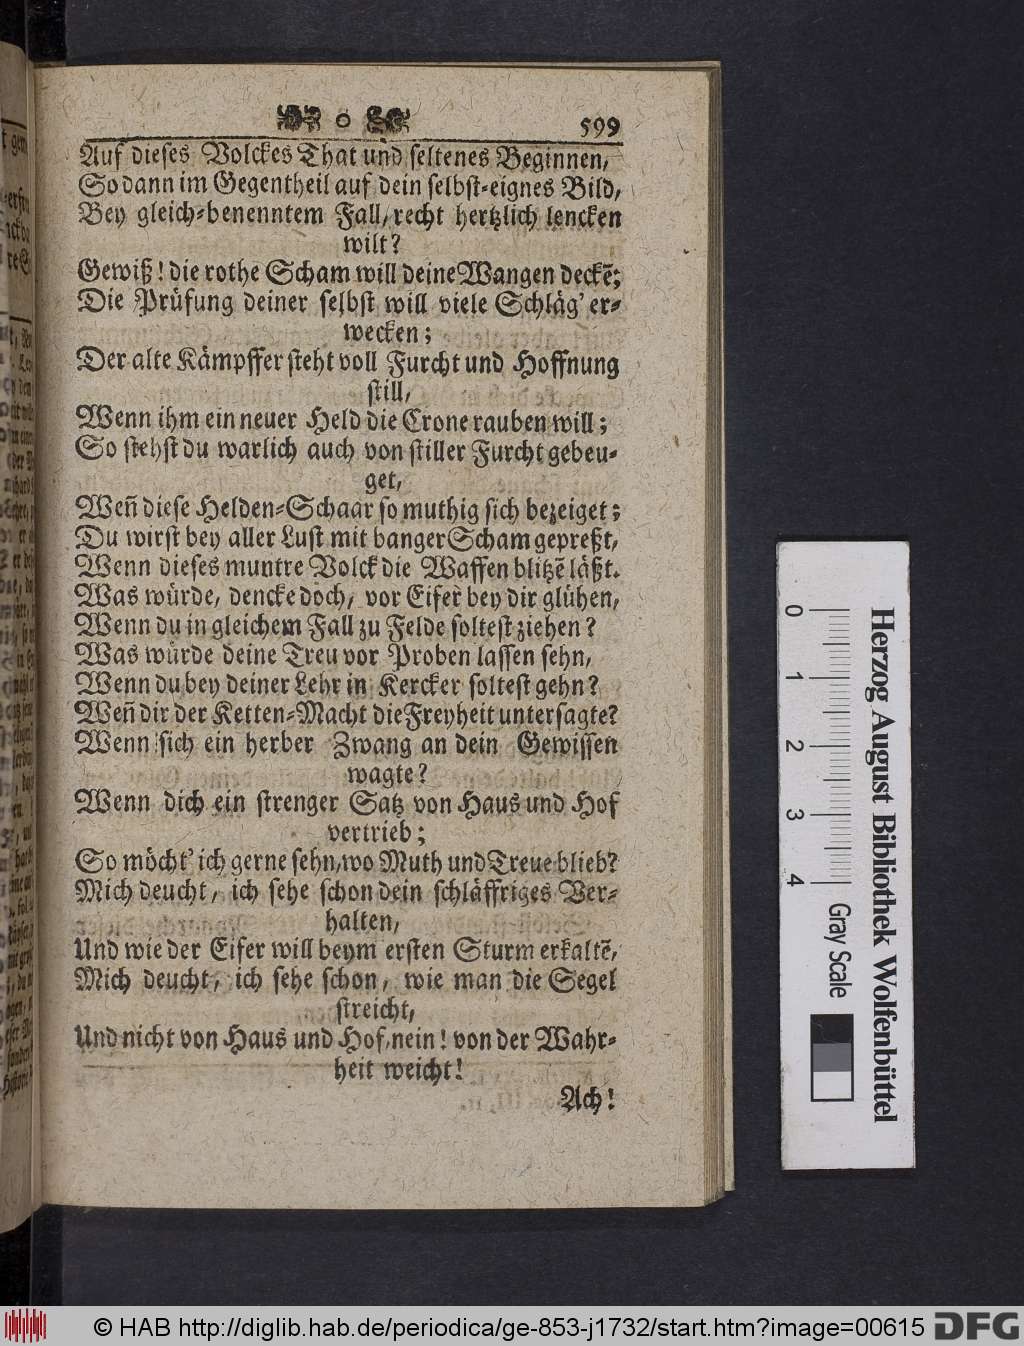 599
Auf dieses Volckes That und seltenes Beginnen,
So dann im Gegentheil auf dein selbst-eignes Bild,
Bey gleich-benenntem Fall, recht hertzlich lencken
wilt?
Gewiß! die rothe Scham will deine Wangen deckē;
Die Prüfung deiner selbst will viele Schläg' er-
wecken;
Der alte Kämpffer steht voll Furcht und Hoffnung
still,
Wenn ihm ein neuer Held die Crone rauben will;
So stehst du warlich auch von stiller Furcht gebeu-
get,
Weñ diese Helden-Schaar so muthig sich bezeiget;
Du wirst bey aller Lust mit banger Scham gepreßt,
Wenn dieses muntre Volck die Waffen blitzē läßt.
Was würde, dencke doch, vor Eifer bey dir glühen,
Wenn du in gleichem Fall zu Felde soltest ziehen?
Was würde deine Treu vor Proben lassen sehn,
Wenn du bey deiner Lehr in Kercker soltest gehn?
Weñ dir der Ketten-Macht die Freyheit untersagte?
Wenn sich ein herber Zwang an dein Gewissen
wagte?
Wenn dich ein strenger Satz von Haus und Hof
vertrieb;
So möcht' ich gerne sehn, wo Muth und Treue blieb?
Mich deucht, ich sehe schon dein schläffriges Ver-
halten,
Und wie der Eifer will beym ersten Sturm erkaltē,
Mich deucht, ich sehe schon, wie man die Segel
streicht,
Und nicht von Haus und Hof, nein! von der Wahr-
heit weicht!
Ach!
Herzog August Bibliothek Wolfenbüttel
0 1 2 3 4
Gray Scale
© HAB http://diglib.hab.de/periodica/ge-853-j1732/start.htm?image=00615
DFG